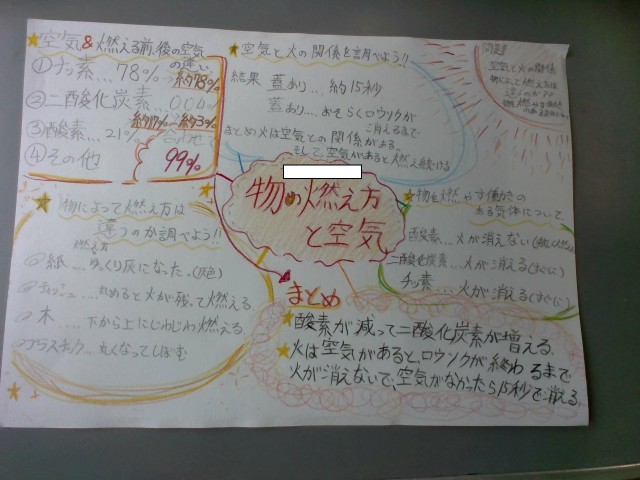 ★空気&燃える前、後の空気の違い
①チッ素…78% 約78%
②二酸化炭素…0.04%
約17% 約3%
③酸素…21%
④その他 99%
★空気と火の関係を調べよう!!
結果 蓋あり…約15秒
蓋あり…おそらくロウソクが
消えるまで
まとめ火は空気との関係がある。
そして空気があると燃え続ける
問題
空気と火の関係
物の燃え方と空気
★物を燃やす働きの
ある気体について
酸素…火が消えない
二酸化炭素…火が消える(すぐに)
チッ素…火が消える(すぐに)
★物によって燃え方は
違うのか調べよう!!
燃え方
紙…ゆっくり灰になった。(灰色)
ティッシュ…丸めると火が残って燃える。
木…下から上にじわじわ燃える。
プラスチック…丸くなってしぼむ
まとめ
★酸素が減って二酸化炭素が増える。
★火は空気があると、ロウソクが終わるまで
火が消えないで、空気がなかったら15秒で消える。